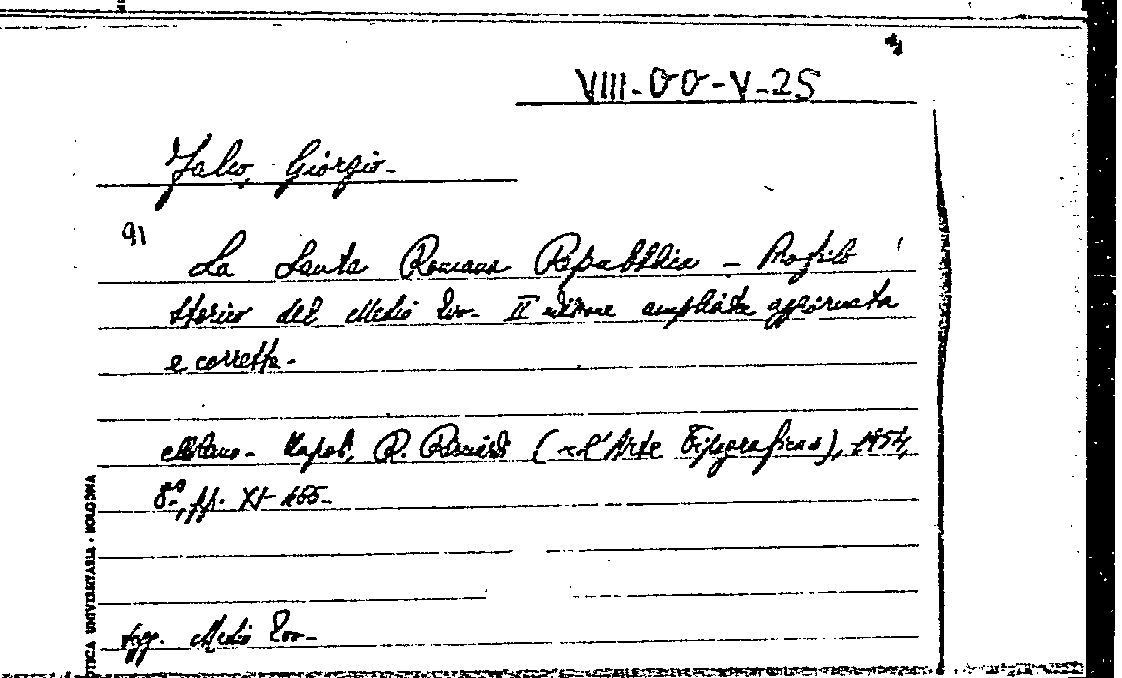 VIII-OO-V-25
Falco, Giorgio-
91
La Santa Romana Repubblica - Profilo
storico del Medio Evo- II edizione ampliata aggiornata
e corretta.
Milano- Napoli, R. Ricciardi (nell'Arte Tipografica), 1954,
8º, pp. XI-
Sogg. Medio Evo-
TECA UNIVERSITARIA - BOLOGNA